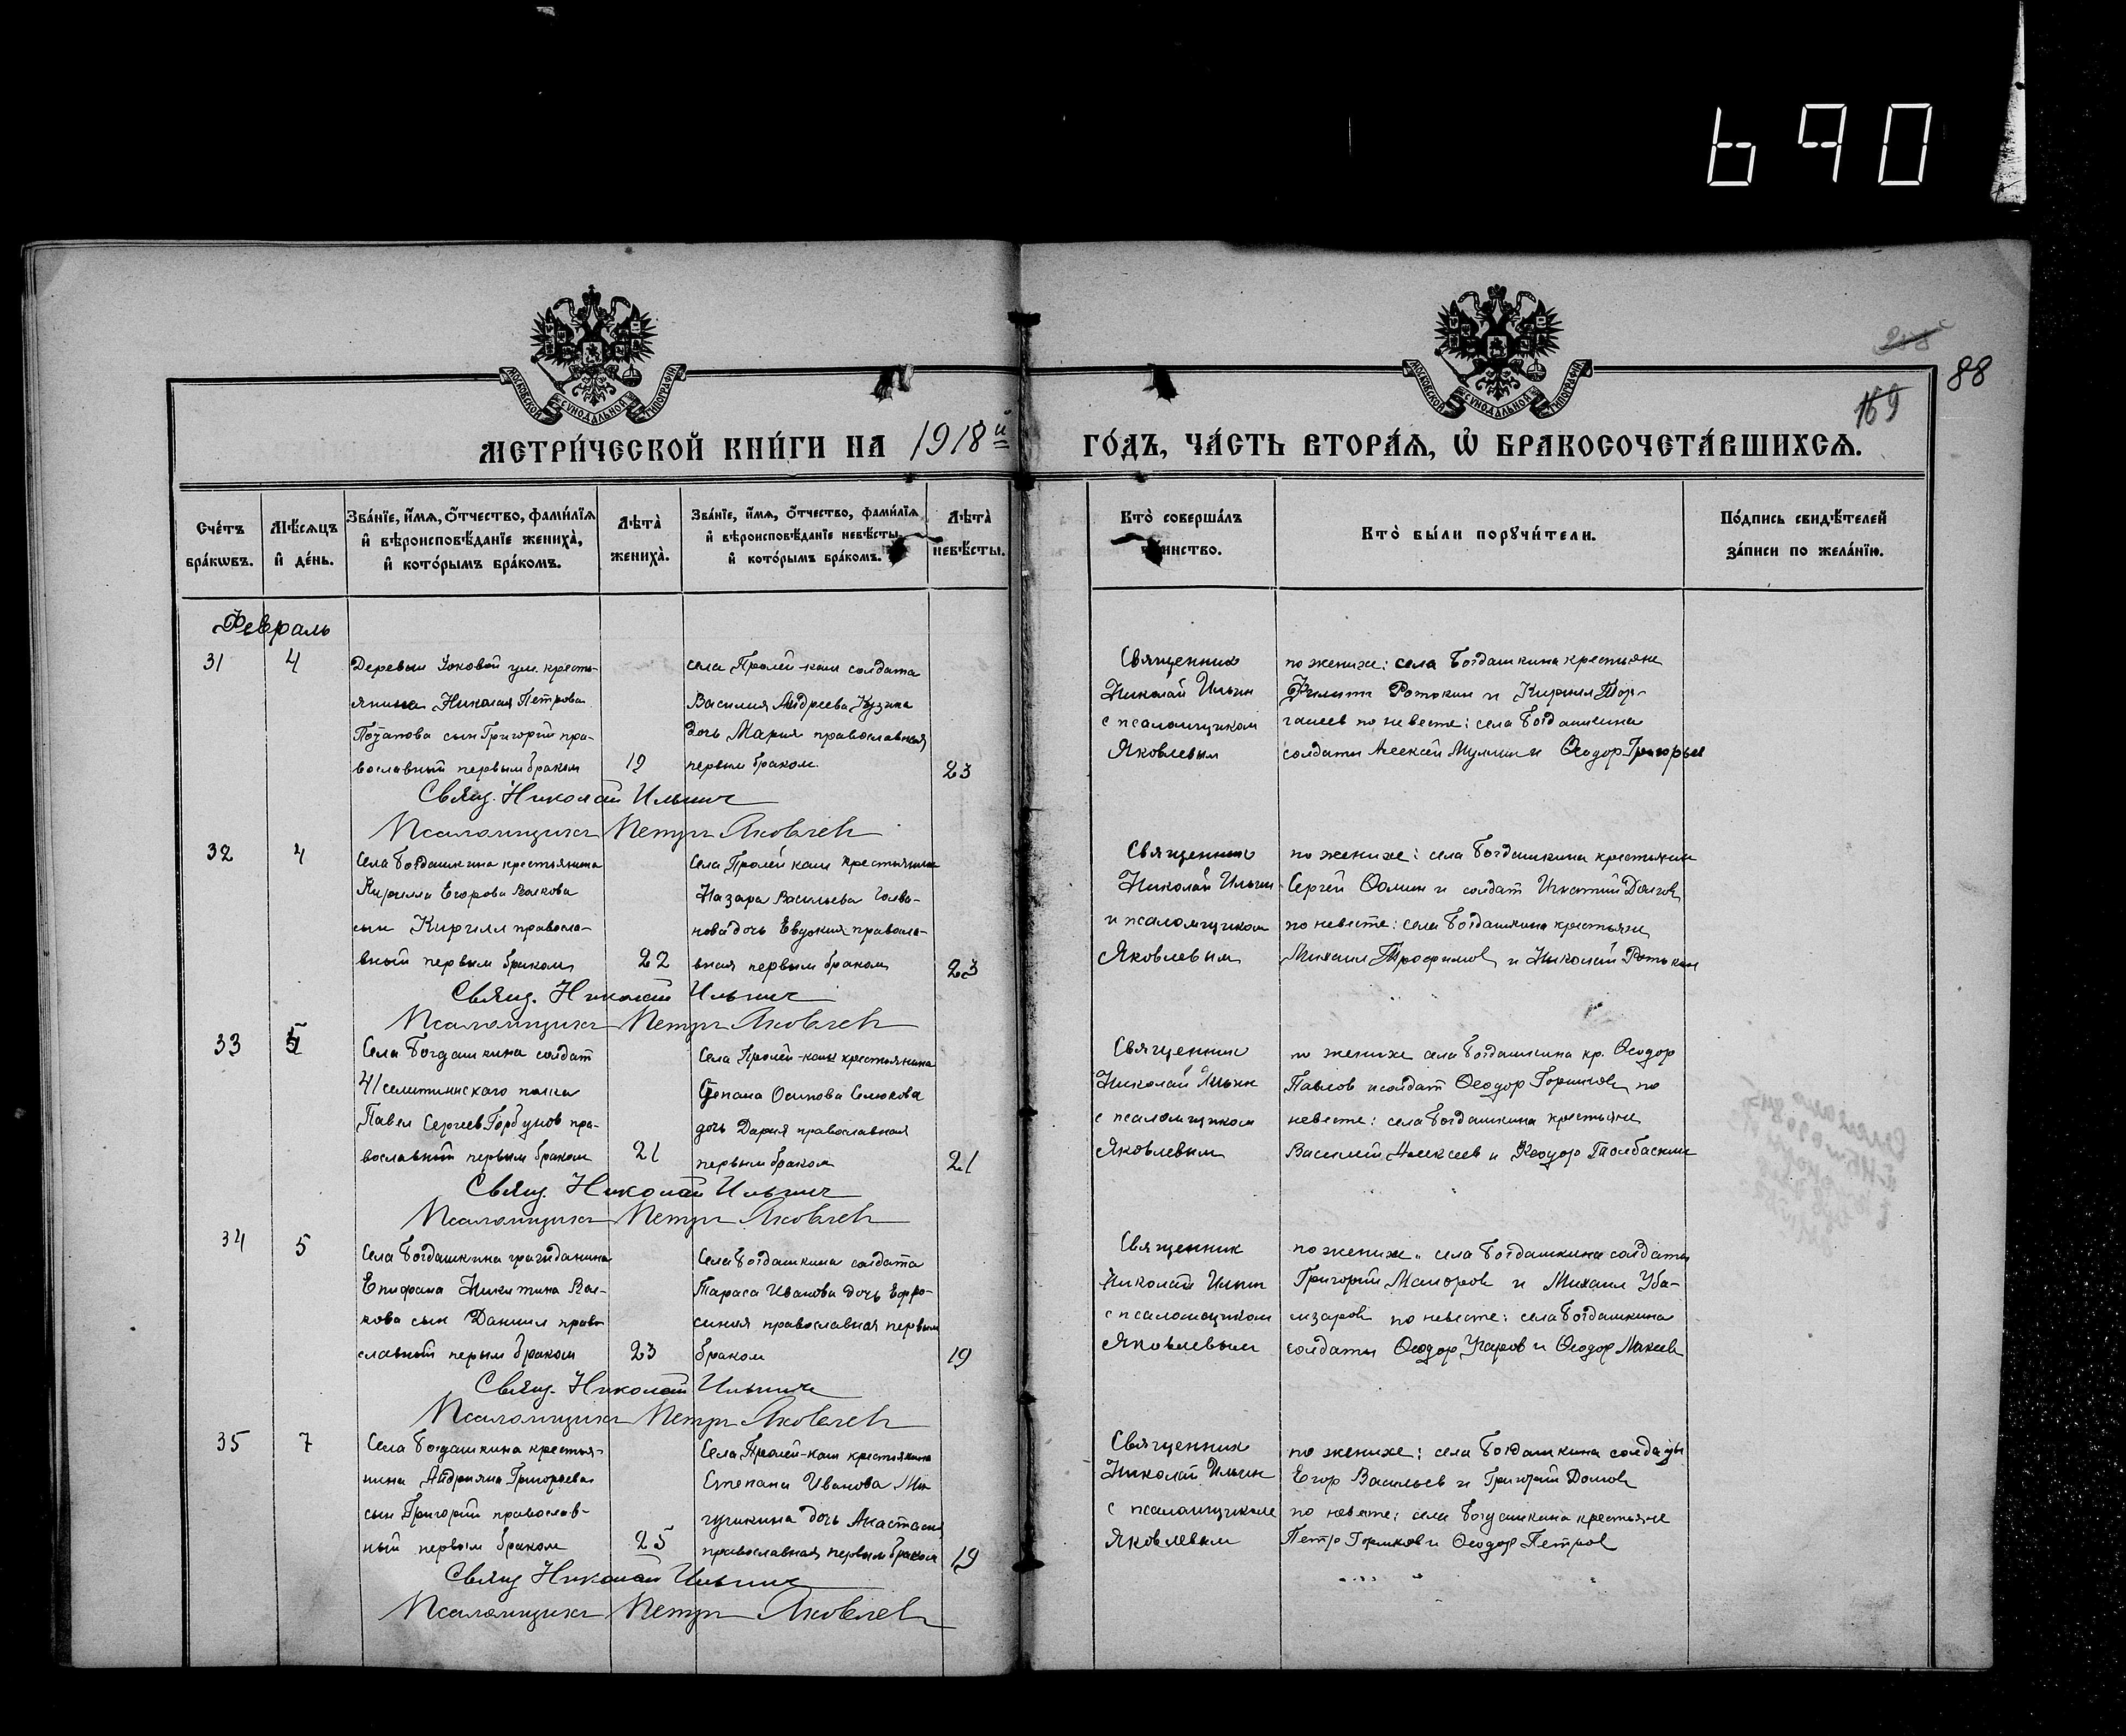 690
88
169
МОСКОВСКОЙ СУНОДАЛЬНОЙ ТИПОГРАФІИ
МОСКОВСКОЙ СУНОДАЛЬНОЙ ТИПОГРАФІИ
МЕТРИ́ЧЕСКОЙ КНИ́ГИ НА 1918й ГО́ДЪ, ЧА́СТЬ ВТОРА́Я, Ѡ҆ БРАКОСОЧЕТА́ВШИХСѦ.
Сче́тъ бра́кѡвъ.
Мѣ́сѧцъ и҆ де́нь.
Зва́нїе, и҆́мѧ, ѻ҆́тчество, фами́лїѧ и҆ вѣроисповѣ́данїе жениха̀, и҆ кото́рымъ бра́комъ.
Лѣта̀ жениха̀.
Зва́нїе, и҆́мѧ, ѻ҆́тчество, фами́лїѧ и҆ вѣроисповѣ́данїе невѣ́сты, и҆ кото́рымъ бра́комъ.
Лѣта̀ невѣ́сты.
Кто̀ соверша́лъ
Кто̀ бы́ли порꙋчи́тели.
По́дпись свидѣ́телей за́писи по жела́нїю.
Февраль
31
4
Деревни
кресть-
янина Николая Петрова
сын Григорий пра-
вославный первым браком
19
села Пролей-каш солдата
Василия Андреева Кузина
дочь Мария православная
первым браком.
23
Священник
Николай Ильин
с псаломщиком
Яковлевым
по женихе: села Богдашкина крестьяне
Филипп Ротокин и Кирилл
по невесте: села Богдашкина
солдаты Алексей и Феодор Григорьев
Свящ. Николай Ильин
Псаломщикъ Петръ Яковлев
32
4
Села Богдашкина крестьянина
Кирилла Егорова Волкова
сын Кирилл правосла-
вный первым браком
22
Села Пролей каш крестьянина
Назара Васильева
дочь Евдокия правосла-
вная первым браком
23
Священник
Николай Ильин
и псаломщиком
Яковлевым
по женихе: села Богдашкина крестьянин
Сергей Фомин и солдат Игнатий Долгов
по невесте: села Богдашкина крестьяне
Михаил Трофимов и Николай Ротокин
Свящ. Николай Ильин
Псаломщикъ Петръ Яковлев
33
5
Села Богдашкина солдат
41 селенгинскаго полка
Павел Сергеев Горбунов пра-
вославный первым браком
21
Села Пролей-каш крестьянина
Степана Осипова Селюкова
дочь Дария православная
первым браком
21
Священник
Николай Ильин
с псаломщиком
Яковлевым
по женихе села Богдашкина кр. Феодор
Павлов и солдат Феодор Горшков по
невесте: села Богдашкина крестьяне
Василий Алексеев и Феодор
Свящ. Николай Ильин
Псаломщикъ Петръ Яковлев
34
5
Села Богдашкина гражданина
Епифана Никитина Вол-
кова сын Даниил право
славный перым браком
23
Села Богдашкина солдата
Тараса Иванова дочь Ефро-
синия православная первым
браком
19
Священник
Николай Ильин
с псаломщиком
Яковлевым
по женихе: села Богдашкина солдаты
Григорий Майоров и Михаил
по невесте: села Богдашкина
солдаты Феодор Угаров и Феодор Макеев
Свящ. Николай Ильин
Псаломщикъ Петръ Яковлев
35
7
Села Богдашкина крестья-
нина Андрияна Григорьева
сын Григорий православ-
ный первым браком
25
Села Пролей-каш крестьянина
Степана Иванова
дочь Анастасия
православная первым браком
19
Священник
Николай Ильин
с псаломщиком
Яковлевым
по женихе: села Богдашкина солдаты
Егор Васильев и Григорий Домов
по невесте: села Богдашкина крестьяне
Петр Горшков и Феодор Петров
Свящ Николай Ильин
Псаломщикъ Петръ Яковлев